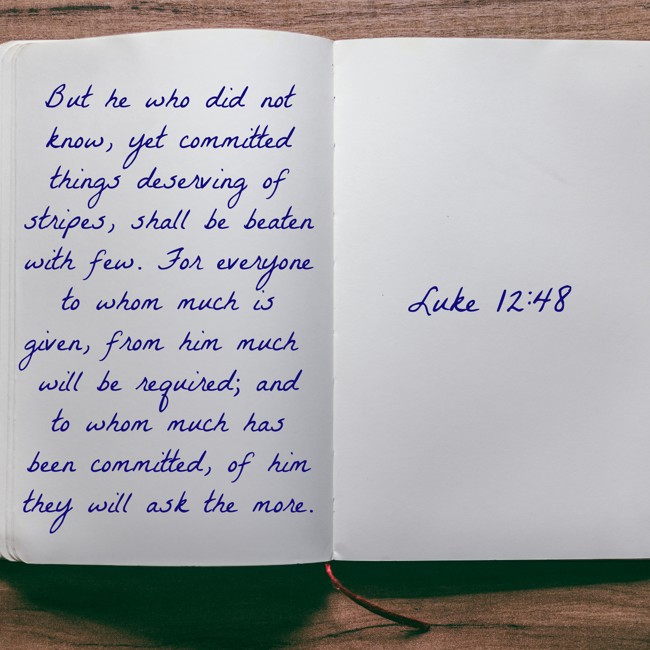 But he who did not
know, yet committed
things deserving of
stripes, shall be beaten
with few. For everyone
to whom much is
given, from him much
will be required; and
to whom much has
been committed, of him
they will ask the more.
Luke 12:48